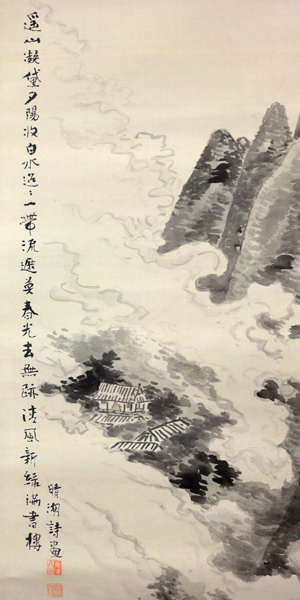 遥山凝黛夕陽收白水迢々一帶流遮莫春光去無跡清風新綠滿書樓
晴湖詩画